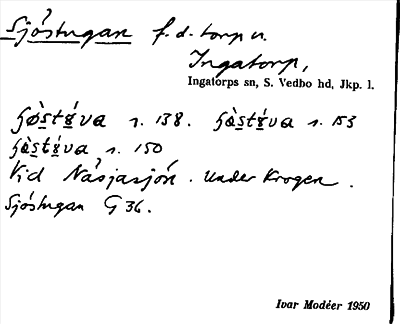 Sjöstugan f. d. torp u.
Ingatorp,
Ingatorps sn, S. Vedbo hd, Jkp. l.
s. 138. s. 153
s. 150
Vid Näsjasjön. under Krogen.
Sjöstugan G 36.
Ivar Modéer 1950